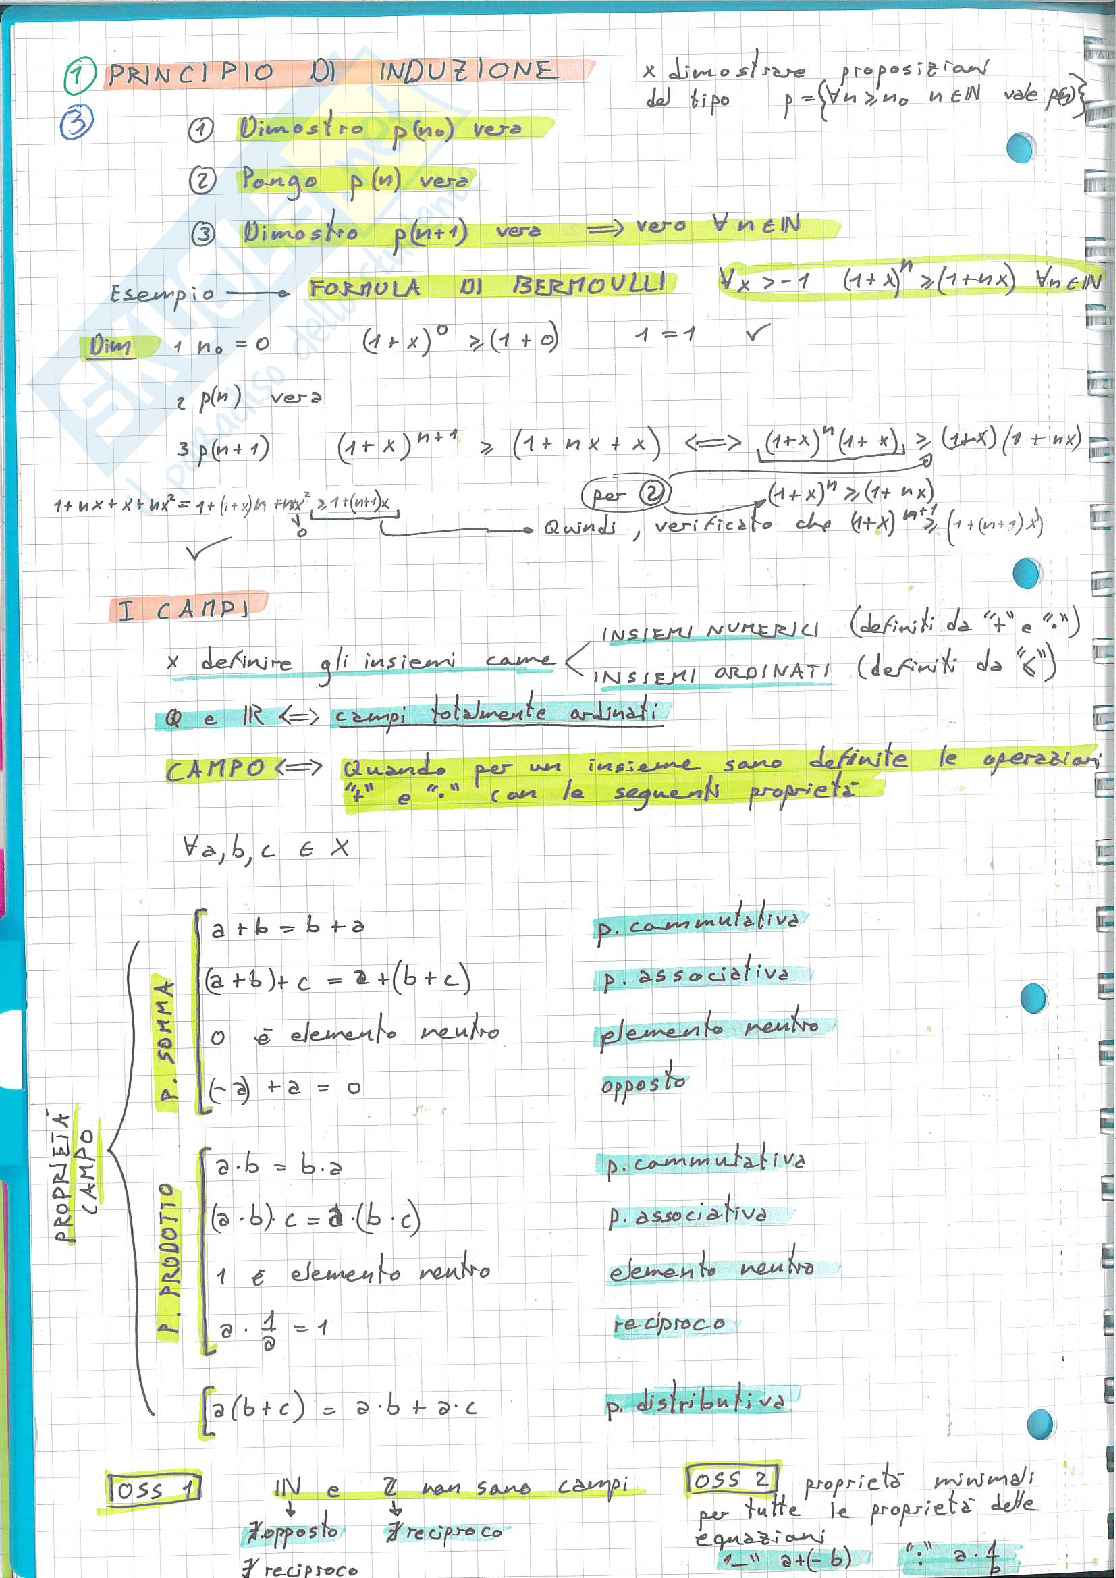 ① PRINCIPIO DI INDUZIONE
x dimostrare proposizioni
del tipo p = {∀n ≥ n₀ n∈ℕ vale p(n)}
③
① Dimostro p(n₀) vera
② Pongo p(n) vera
③ Dimostro p(n+1) vera ⟹ vero ∀n∈ℕ
Esempio → FORMULA DI BERMOULLI ∀x > -1 (1+x)ⁿ ≥ (1+nx) ∀n∈ℕ
Dim 1 n₀ = 0 (1+x)⁰ ≥ (1+0) 1 = 1 ✓
2 p(n) vera
3 p(n+1) (1+x)ⁿ⁺¹ ≥ (1+nx+x) ⟺ (1+x)ⁿ(1+x) ≥ (1+x)(1+nx)
per ② (1+x)ⁿ ≥ (1+nx)
1+nx+x+nx² = 1+(1+x)n+nx² ≥ 1+(n+1)x
0
Quindi, verificato che (1+x)ⁿ⁺¹ ≥ (1+(n+1)x)
✓
I CAMPI
x definire gli insiemi come
INSIEMI NUMERICI (definiti da "+" e "·")
INSIEMI ORDINATI (definiti da "≤")
Q e ℝ ⟺ campi totalmente ordinati
CAMPO ⟺ Quando per un insieme sono definite le operazioni
"+" e "·" con le seguenti proprietà
∀a,b,c ∈ X
PROPRIETÀ CAMPO
P. SOMMA
a+b = b+a p. commutativa
(a+b)+c = a+(b+c) p. associativa
0 è elemento neutro elemento neutro
(-a)+a = 0 opposto
P. PRODOTTO
a·b = b·a p. commutativa
(a·b)·c = a·(b·c) p. associativa
1 è elemento neutro elemento neutro
a·1/a = 1 reciproco
a(b+c) = a·b+a·c p. distributiva
OSS 1 ℕ e ℤ non sono campi
↓ ↓
∄ opposto ∄ reciproco
∄ reciproco
OSS 2 proprietà minimali
per tutte le proprietà delle
equazioni
"-" a+(-b) ":" a·1/b